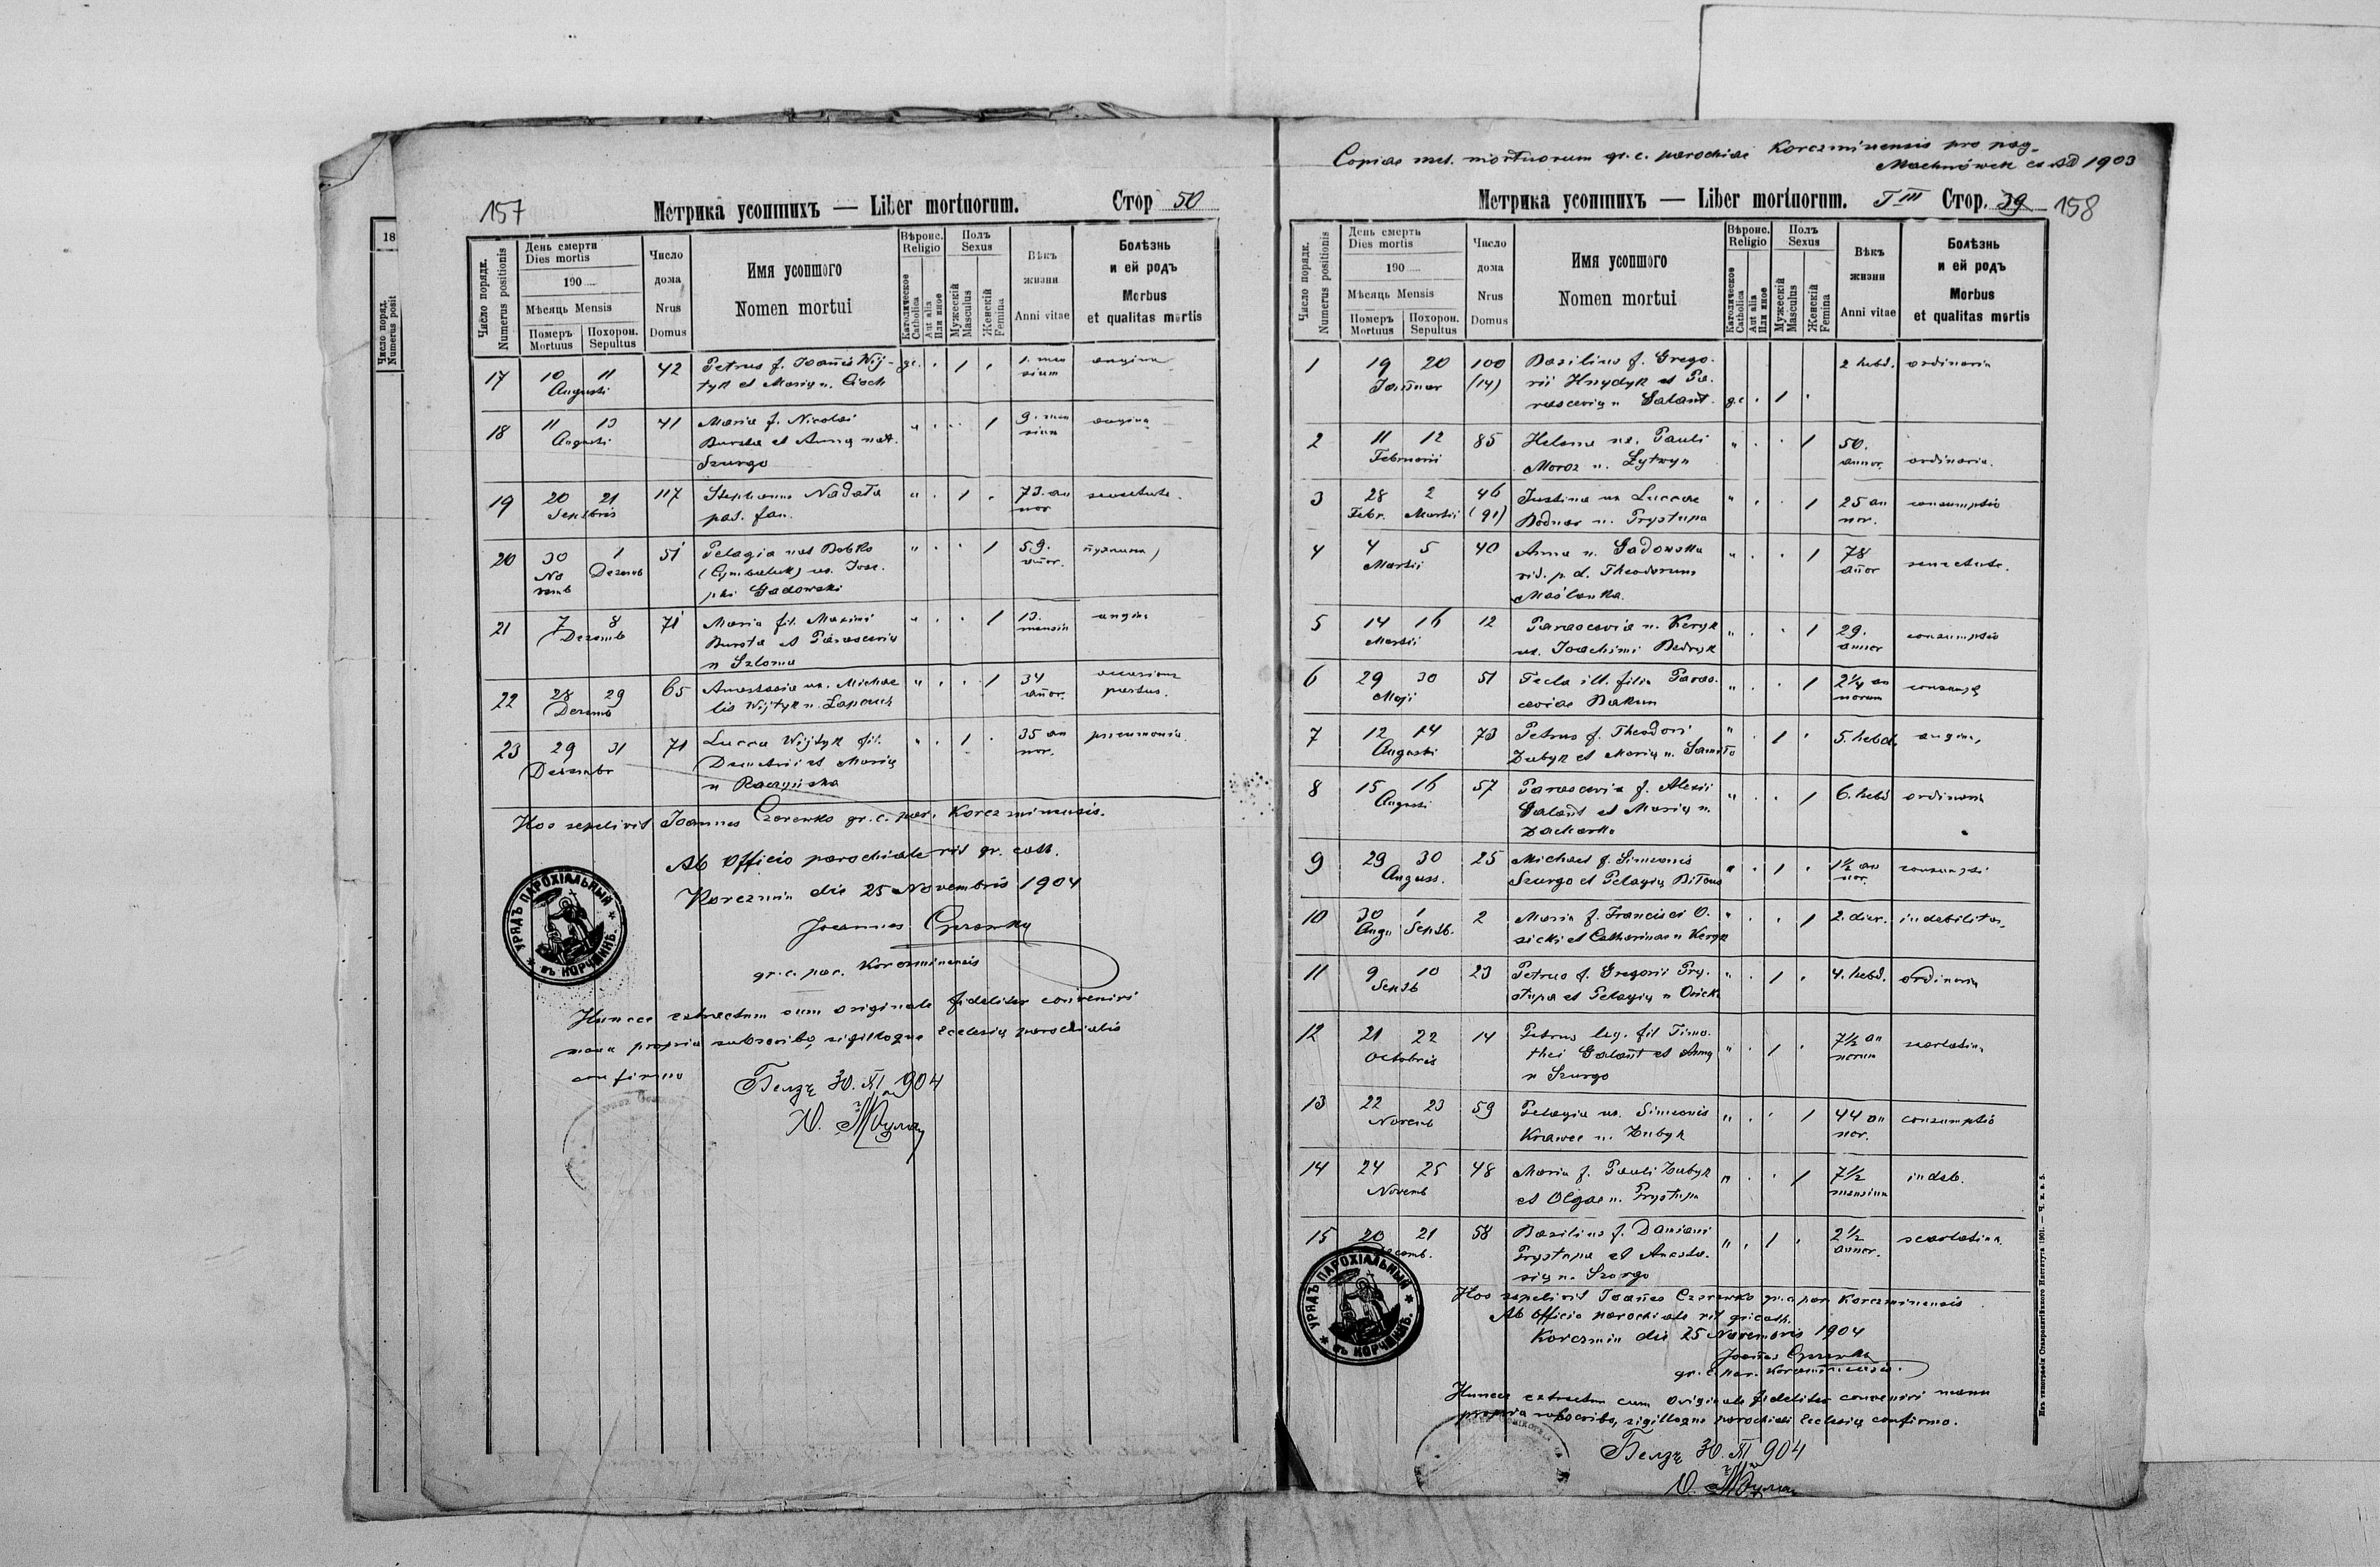 157
Метрика усопшихъ — Liber mortuorum.
Стор 50
18
Число поряд.
Numerus posit
Число порядк.
Numerus positionis
День смерти
Dies mortis
190
Мѣсяць Mensis
Померъ
Mortuus
Похорон.
Sepultus
Число
дома
Nrus
Domus
Имя усопшого
Nomen mortui
Вѣроис.
Religio
Католическое
Catholica
Aut alia
Или иное
Полъ
Sexus
Мужескій
Masculus
Женскій
Femina
Вѣкъ
жизни
Anni vitae
Болѣзнь
и ей родъ
Morbus
et qualitas mortis
17 10 11 42 Petrus f. Joañis Wij- gc. 1 1. men angina
Augusti tyk et Marię n. sium
18 11 13 41 Maria f. Nicolai " 1 9. men angina
Augusti Bursta et Annę nat. sium
Szurgo
19 20 21 117 Stephanus Nadata " 1 73. an senectute.
Septbris nor
20 30 1 51 Pelagia nat Bobko " 1 59.
No Dezemb (Cymbaluk) ux. Jose- añor.
vemb phi Gadowski
21 7 8 71 Maria fil. Maximi " 1 13. angina
Dezemb Bursta et Parascevię mensiu
n Szloma
22 28 29 65 Anastasia ux. Michae " 1 34 occasione
Dezemb lis Wijtyk n. añor. partus.
23 29 31 71 Lucca Wijtyk fil. " 1 35 an pneumonia.
Dezembr Demetrii et Marię nor.
n Raczyńska
Hos sepelivit Joannes Czerewko gr. c. par. Korczminensis.
Ab Officio parochiale rit gr. cath.
Korczmin die 25 Novembris 1904
Joannes Czerewko
gr. c. par. Korczminensis
УРЯДЪ ПАРОХІАЛЬНЫЙ
* въ КОРЧМИНѢ. *
Huncce extractum cum originale fideliter conveniri
manu propria subscribo, sigilloque Ecclesię parochialis
confirmo
Белзъ 30. XI 904
Copiae met. mortuorum gr. c. parochiae Korczminensis pro pag.
Machnówek ex AD 1903
Метрика усопшихъ — Liber mortuorum. T III Стор. 39 158
Число порядк.
Numerus positionis
День смерть
Dies mortis
190
Мѣсяць Mensis
Померъ
Mortuus
Похорон.
Sepultus
Число
дома
Nrus
Domus
Имя усопшого
Nomen mortui
Вѣроис.
Religio
Католическое
Catholica
Aut alia
Или иное
Полъ
Sexus
Мужескій
Masculus
Женскій
Femina
Вѣкъ
жизни
Anni vitae
Болѣзнь
и ей родъ
Morbus
et qualitas mortis
1 19 20 100 Basilius f. Grego- 2 hebd. ordinaria
Januar (14) rii Hnydyk et Pa-
rascevię n Galant. gc 1
2 11 12 85 Helena ux. Pauli " 1 50.
Februarii Moroz n. Żytwyn annor. ordinaria.
3 28 2 46 Justina ux Luccae " 1 25 an consumptio
Febr. Martii (91) Bodnar n. Prystupa nor.
4 4 5 40 Anna n. Gadowska " 1 78 senectute.
Martii vid. p. d. Theodorum añor
Maślanka.
5 14 16 12 Parascevia n. Keryk " 1 29. consumptio
Martii ux. Joachimi Bedryk annor
6 29 30 51 Tecla ill. filia Paras- " 1 2 1/4 an
Maji ceviae Bakun norum
7 12 14 73 Petrus f. Theodori " 1 5. hebd. angina,
Augusti Zubyk et Marię n.
8 15 16 57 Parascevia f. Alexii " 1 6. hebd ordinaria
Augusti Galant et Marię n.
Zacharko
9 29 30 25 Michael f. Simeonis " 1 1 1/2 an
August. Szurgo et Pelagię nor.
10 30 1 2 Maria f. Francisci O- " 1 2. dier. indebilitas,
Augu Septb. sicki et Catharinae n Keryk
11 9 10 23 Petrus f. Gregorii Pry- " 1 4. hebd. ordinaria
Septb stupa et Pelagię n Osicki
12 21 22 14 Petrus leg. fil Timo- 7 1/2 an scarlatina
Octobris thei Galant et Annę " 1 norum
n Szurgo
13 22 23 59 Pelagia ux. Simeonis " 1 44 an consumptio
Novemb Krawec n. Zubyk nor.
14 24 25 48 Maria f. Pauli Zubyk " 1 7 1/2 indeb.
Novemb et Olgae n. Prystupa mensium
15 20 21 58 Basilius f. Damiani " 1 2 1/2 scarlatina.
Decemb. Prystupa et Anasta- annor.
się n. Szurgo
Hos sepelivit Joañes Czerewko gr. c. par Korczminensis
Ab Officio parochiale rit gr. cath.
Korczmin die 25 Novembris 1904
Joañes Czerewko
gr. c. par. Korczminensis.
УРЯДЪ ПАРОХІАЛЬНЫЙ
* въ КОРЧМИНѢ. *
Huncce extractum cum originale fideliter conveniri manu
propria subscribo, sigilloque parochiali Ecclesię confirmo.
Белзъ 30. XI 904
Изъ типографіи Ставропигійского Института 1901. — Ч. к. в. 5.